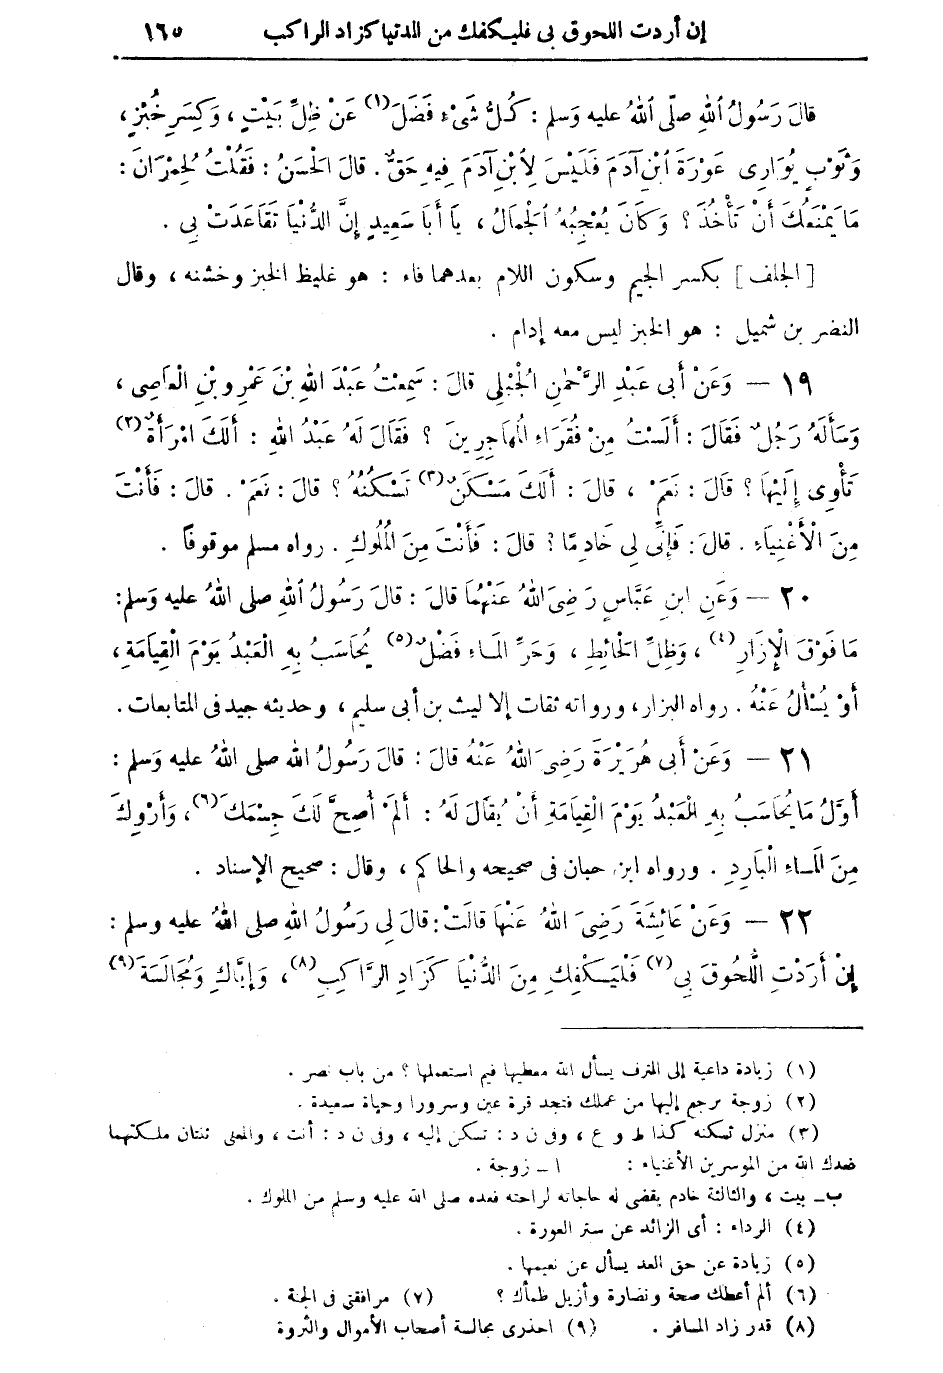 إن أردت اللحوق بى فليكفك من الدنيا كزاد الراكب ١٦٥
قالَ رَسُولُ اللهِ صلّى اللهُ عليه وَسلم : كُلُّ شَىْءٍ فَضَلَ (١) عَنْ ظِلِّ بَيْتٍ ، وَكِسَرِ خُبْزٍ ،
وَثَوْبٍ يُوَارِى عَوْرَةَ ابْنِ آدَمَ فَلَيْسَ لِابْنِ آدَمَ فِيهِ حَقٌّ . قالَ الْحَسَنُ : فَقُلْتُ لِحِمْرَانَ :
مَا يَمْنَعُكَ أَنْ تَأْخُذَ ؟ وَكَانَ يُعْجِبُهُ الْجَمَالُ ، يَا أَبَا سَعِيدٍ إِنَّ الدُّنْيَا تَقَاعَدَتْ بِى .
[ الجلف ] بكسر الجيم وسكون اللام بعدهما فاء : هو غليظ الخبز وخشنه ، وقال
النضر بن شميل : هو الخبز ليس معه إدام .
١٩ — وَعَنْ أَبى عَبْدِ الرَّحْمٰنِ الْحُبُلِى قالَ : سَمِعْتُ عَبْدَ اللهِ بْنَ عَمْرِو بْنِ الْعَاصِى ،
وَسَأَلَهُ رَجُلٌ فَقَالَ : أَلَسْتُ مِنْ فُقَرَاءِ الْمُهَاجِرِينَ ؟ فَقَالَ لَهُ عَبْدُ اللهِ : أَلَكَ امْرَأَةٌ (٢)
تَأْوِى إِلَيْهَا ؟ قالَ : نَعَمْ ، قالَ : أَلَكَ مَسْكَنٌ (٣) تَسْكُنُهُ ؟ قالَ : نَعَمْ . قالَ : فَأَنْتَ
مِنَ الْأَغْنِيَاءِ . قالَ : فَإِنَّ لِى خَادِمًا ؟ قالَ : فَأَنْتَ مِنَ الْمُلُوكِ . رواه مسلم موقوفاً .
٢٠ — وَعَنِ ابنِ عَبَّاسٍ رَضِىَ اللهُ عَنْهُمَا قالَ : قالَ رَسُولُ اللهِ صلى اللهُ عليه وَسلم :
مَا فَوْقَ الْإِزَارِ (٤) ، وَظِلِّ الْحَائِطِ ، وَحَرِّ الْمَاءِ فَضْلٌ (٥) يُحَاسَبُ بِهِ الْعَبْدُ يَوْمَ الْقِيَامَةِ ،
أَوْ يُسْأَلُ عَنْهُ . رواه البزار ، ورواته ثقات إلا ليث بن أبى سليم ، وحديثه جيد فى المتابعات .
٢١ — وَعَنْ أَبى هُرَيْرَةَ رَضِىَ اللهُ عَنْهُ قالَ : قالَ رَسُولُ اللهِ صلى اللهُ عليه وَسلم :
أَوَّلُ مَا يُحَاسَبُ بِهِ الْعَبْدُ يَوْمَ الْقِيَامَةِ أَنْ يُقَالَ لَهُ : أَلَمْ أُصِحَّ لَكَ جِسْمَكَ (٦) ، وَأَرْوِكَ
مِنَ الْمَاءِ الْبَارِدِ . ورواه ابن حبان فى صحيحه والحاكم ، وقال : صحيح الإسناد .
٢٢ — وَعَنْ عَائِشَةَ رَضِىَ اللهُ عَنْهَا قالَتْ : قالَ لِى رَسُولُ اللهِ صلى اللهُ عليه وسلم :
إِنْ أَرَدْتِ اللُّحُوقَ بِى (٧) فَلْيَكْفِكِ مِنَ الدُّنْيَا كَزَادِ الرَّاكِبِ (٨) ، وَإِيَّاكِ وَمُجَالَسَةَ (٩)
(١) زيادة داعية إلى الترف يسأل الله معطيها فيم استعملها ؟ من باب نصر .
(٢) زوجة ترجع إليها من عملك فتجد قرة عين وسرورا وحياة سعيدة .
(٣) منزل تسكنه كذا ط و ع ، وفى ن د : تسكن إليه ، وفى ن د : أنت ، والمعنى ثنتان ملكتهما
ضدك الله من الموسرين الأغنياء : ١ ــ زوجة .
ب ــ بيت ، والثالثة خادم يقضى له حاجاته لراحته فعده صلى الله عليه وسلم من الملوك .
(٤) الرداء : أى الزائد عن ستر العورة .
(٥) زيادة عن حق العد يسأل عن نعيمها .
(٦) ألم أعطك صحة ونضارة وأزيل ظمأك ؟ (٧) مرافقتى فى الجنة .
(٨) قدر زاد المسافر . (٩) احذرى مجالسة أصحاب الأموال والثروة